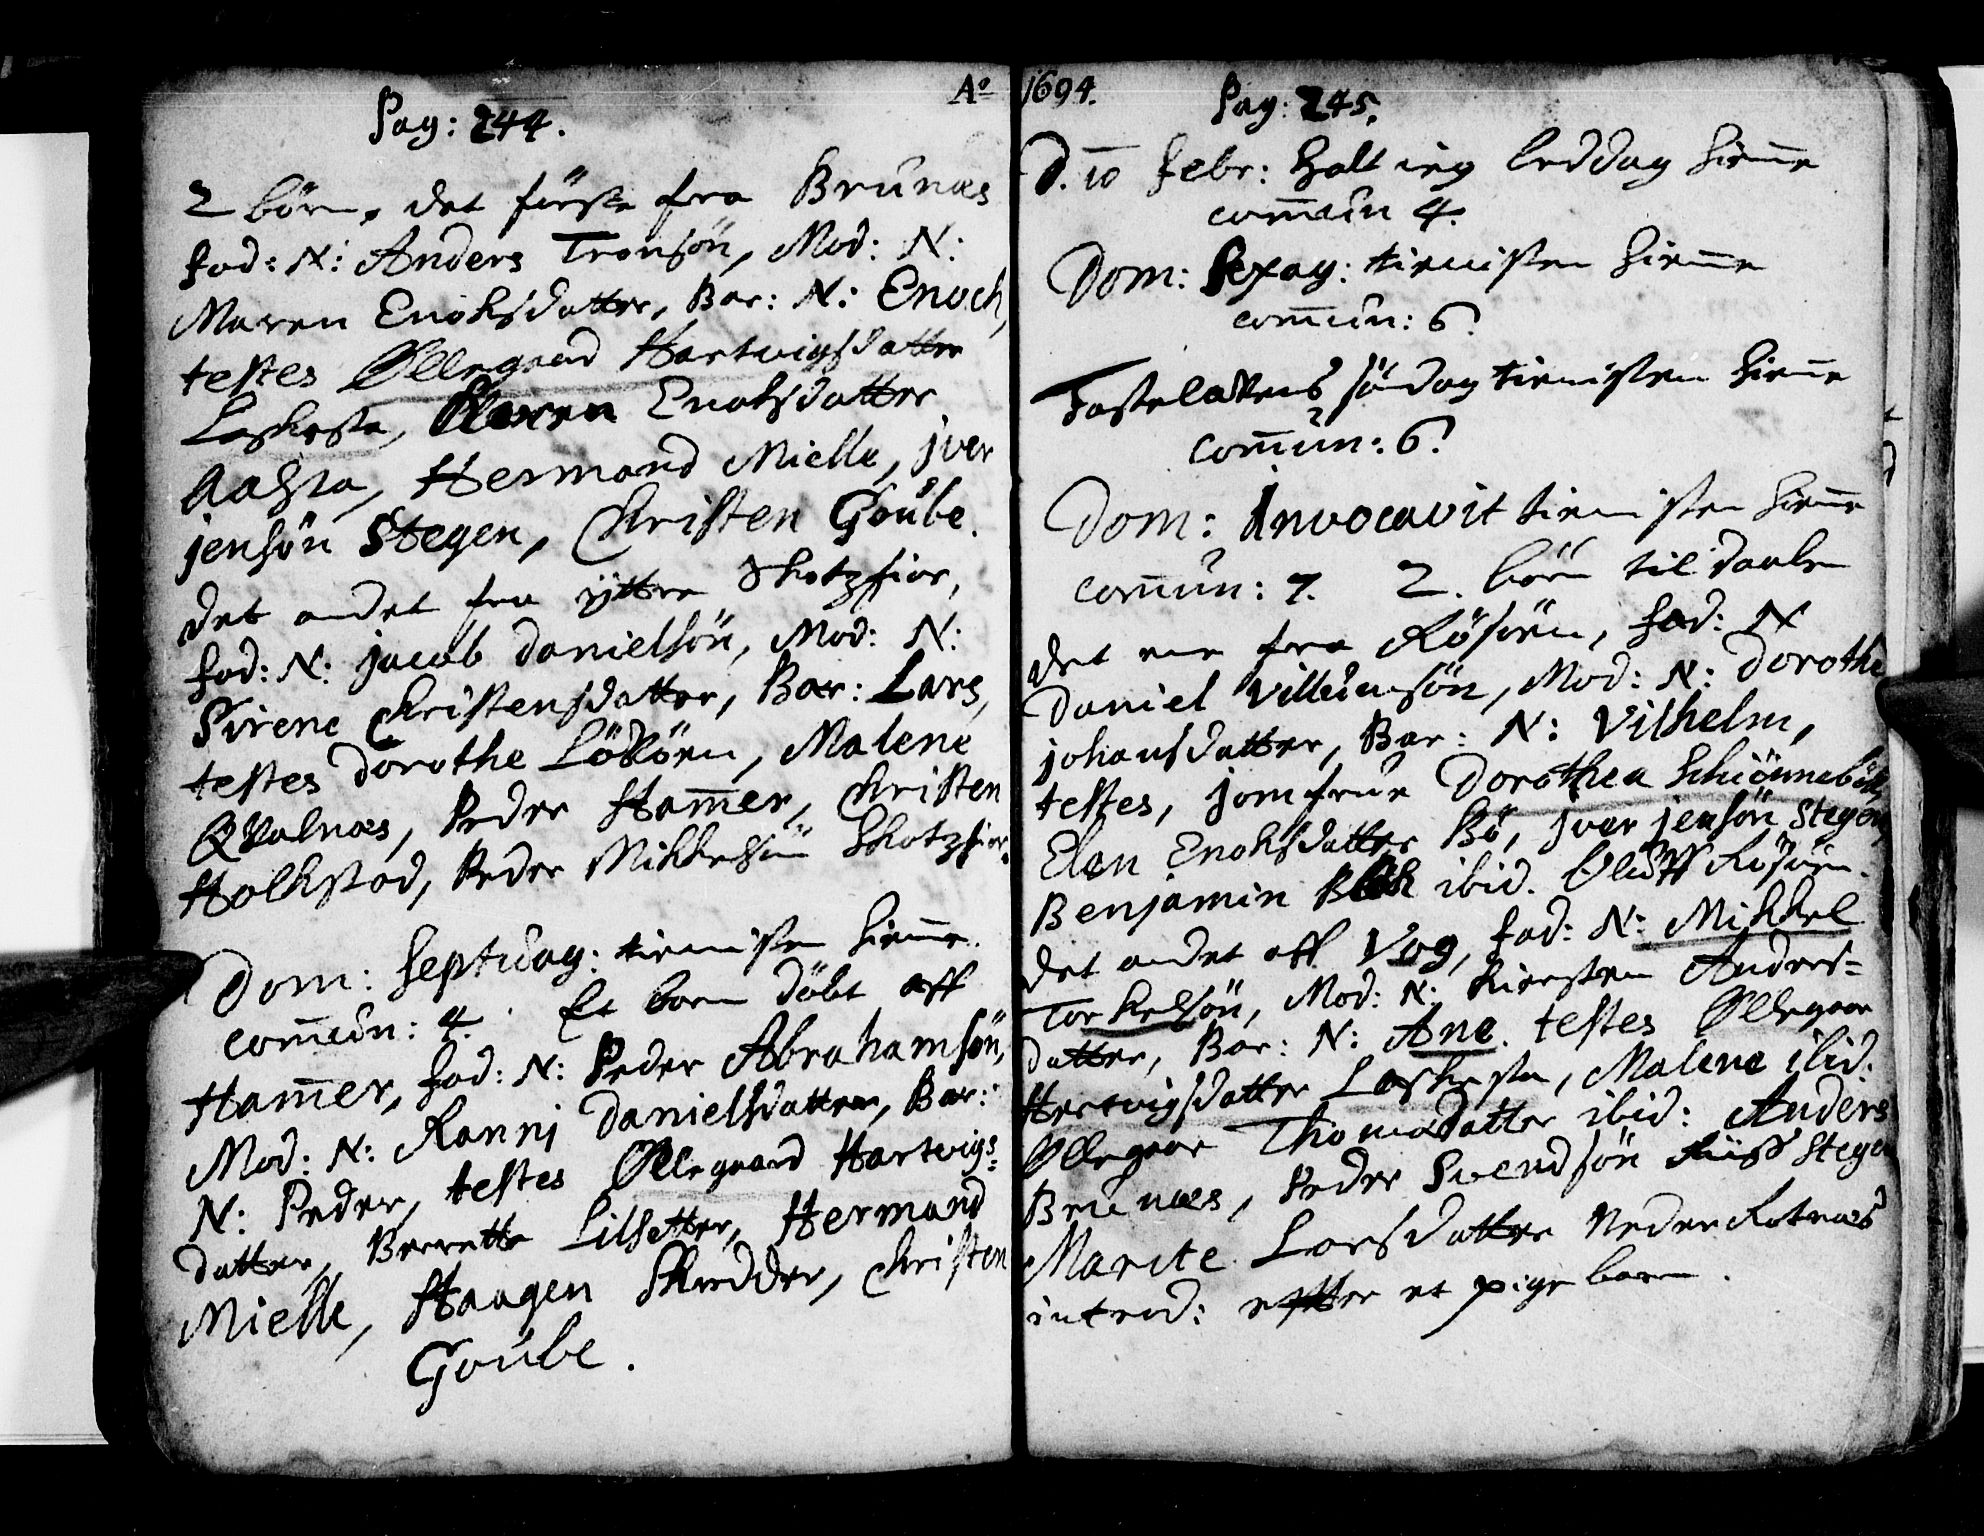 Pag: 244.
2 börn, det förste fra Brunæs
fad: N: Anders Tronsön, Mod: N:
Maren Enoksdatter, Bar: N: Enoch,
testes Øllegaard Hartvigsdatter
Laskesta, Maren Enoksdatter
Hermand Mielle, jver
jensön Stegen, Christen Goübe.
det andet fra yttre Skotzfior,
fad: N: jacob danielsön, Mod: N:
Sirene Christensdatter, Bar: Lars,
testes dorothe Lököen, Malene
Qvalnæs, Peder Ham̅er, Christen
Holkstad, Peder Mikkelsön Skotzfior.
Dom: Septuag: tienisten hiem̅e.
com̅un: 4. Et barn döbt aff
Ham̅er, fad: N: Peder Abrahamsön,
Mod: N: Ranni danielsdatter, Bar:
N: Peder, testes Øllegaard Hartvigs=
datter, Berrette Lilsetter, Hermand
Mielle, Haagen Skredder, Christen
Goübe.
Aº 1694.
Pag: 245.
D. 10 Febr: Holt ieg beddag hiem̅e
com̅un 4.
Dom: Sexag: tienisten hiem̅e
com̅un: 6.
Fastelavens söndag tienisten hiem̅e
com̅un: 6.
Dom: Invocavit tienisten hiem̅e
com̅un: 7. 2. börn til daaben
det ene fra Rösöen, fad: N
Daniel Villumsön, Mod: N: Dorothe
johansdatter, Bar: N: Vilhelm,
testes, jomfrue Dorothea Schiönnebölle,
Elen Enoksdatter Bö, jver jensön Stegen,
Benjamin ibid. Oluff Rösöen.
det andet aff Vog, fad: N: Mikkel
Torkelsön, Mod: N: Kiersten Anders=
datter, Bar: N: Ane. testes Øllegaar
Hertvigsdatter Laskesta, Malene ibid.
Øllegaar Thomædatter ibid: Anders
Brunæs, Peder Svendsön Stegen
Marite Larsdatter Neder Rotnæs
introd: effter et pige barn.